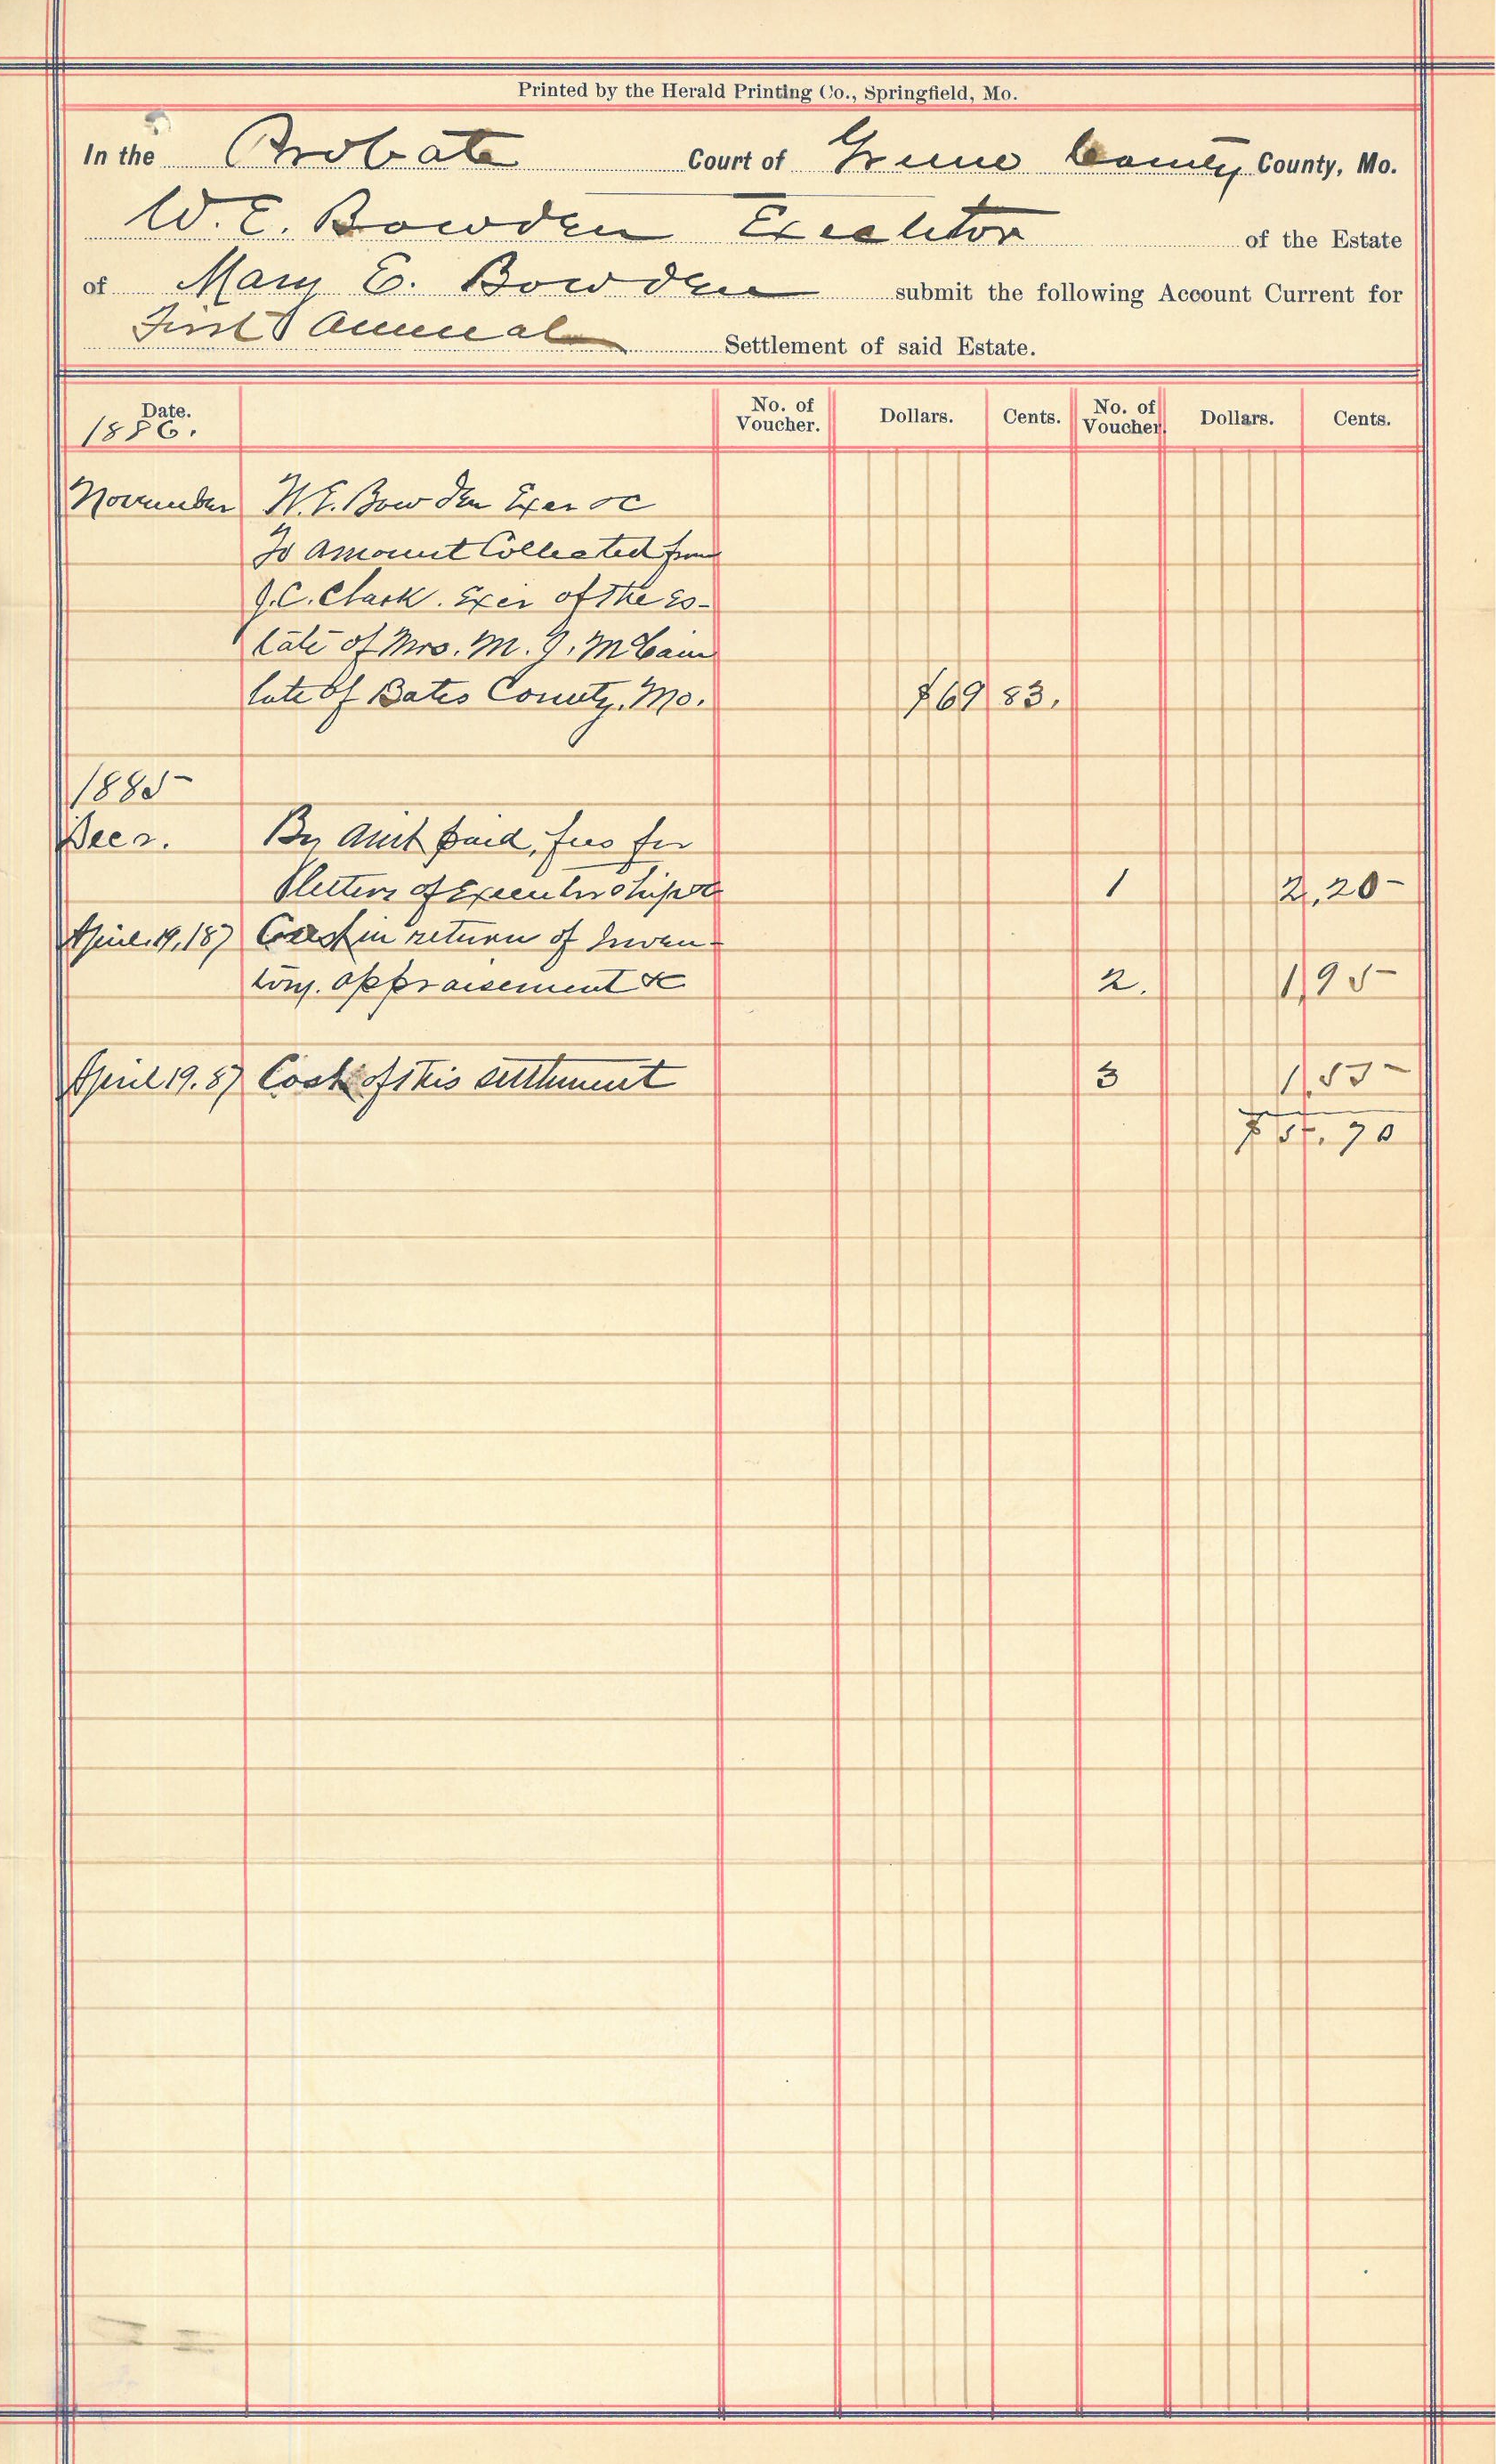 Printed by the Herald Printing Co., Springfield, Mo.
In the Probate Court of Greene County County, Mo.
W. E. Bowden Executor of the Estate
of Mary E. Bowden submit the following Account Current for
First Annual Settlement of said Estate.
Date. No. of Voucher. Dollars. Cents. No. of Voucher. Dollars. Cents.
1886.
November W. E. Bowden Exer &c
To Amount Collected from
J. C. Clark. Exer of the Es-
tate of Mrs. M. J. McCain
late of Bates County, Mo. $69 83.
1885
Dec 2. By Amt paid, fees for
letters of Executorship &c 1 2,20
April 19, 187 Cost in return of Inven-
tory. appraisement &c 2. 1,95
April 19. 87 Cost of this settlement 3 1,55
$5.70